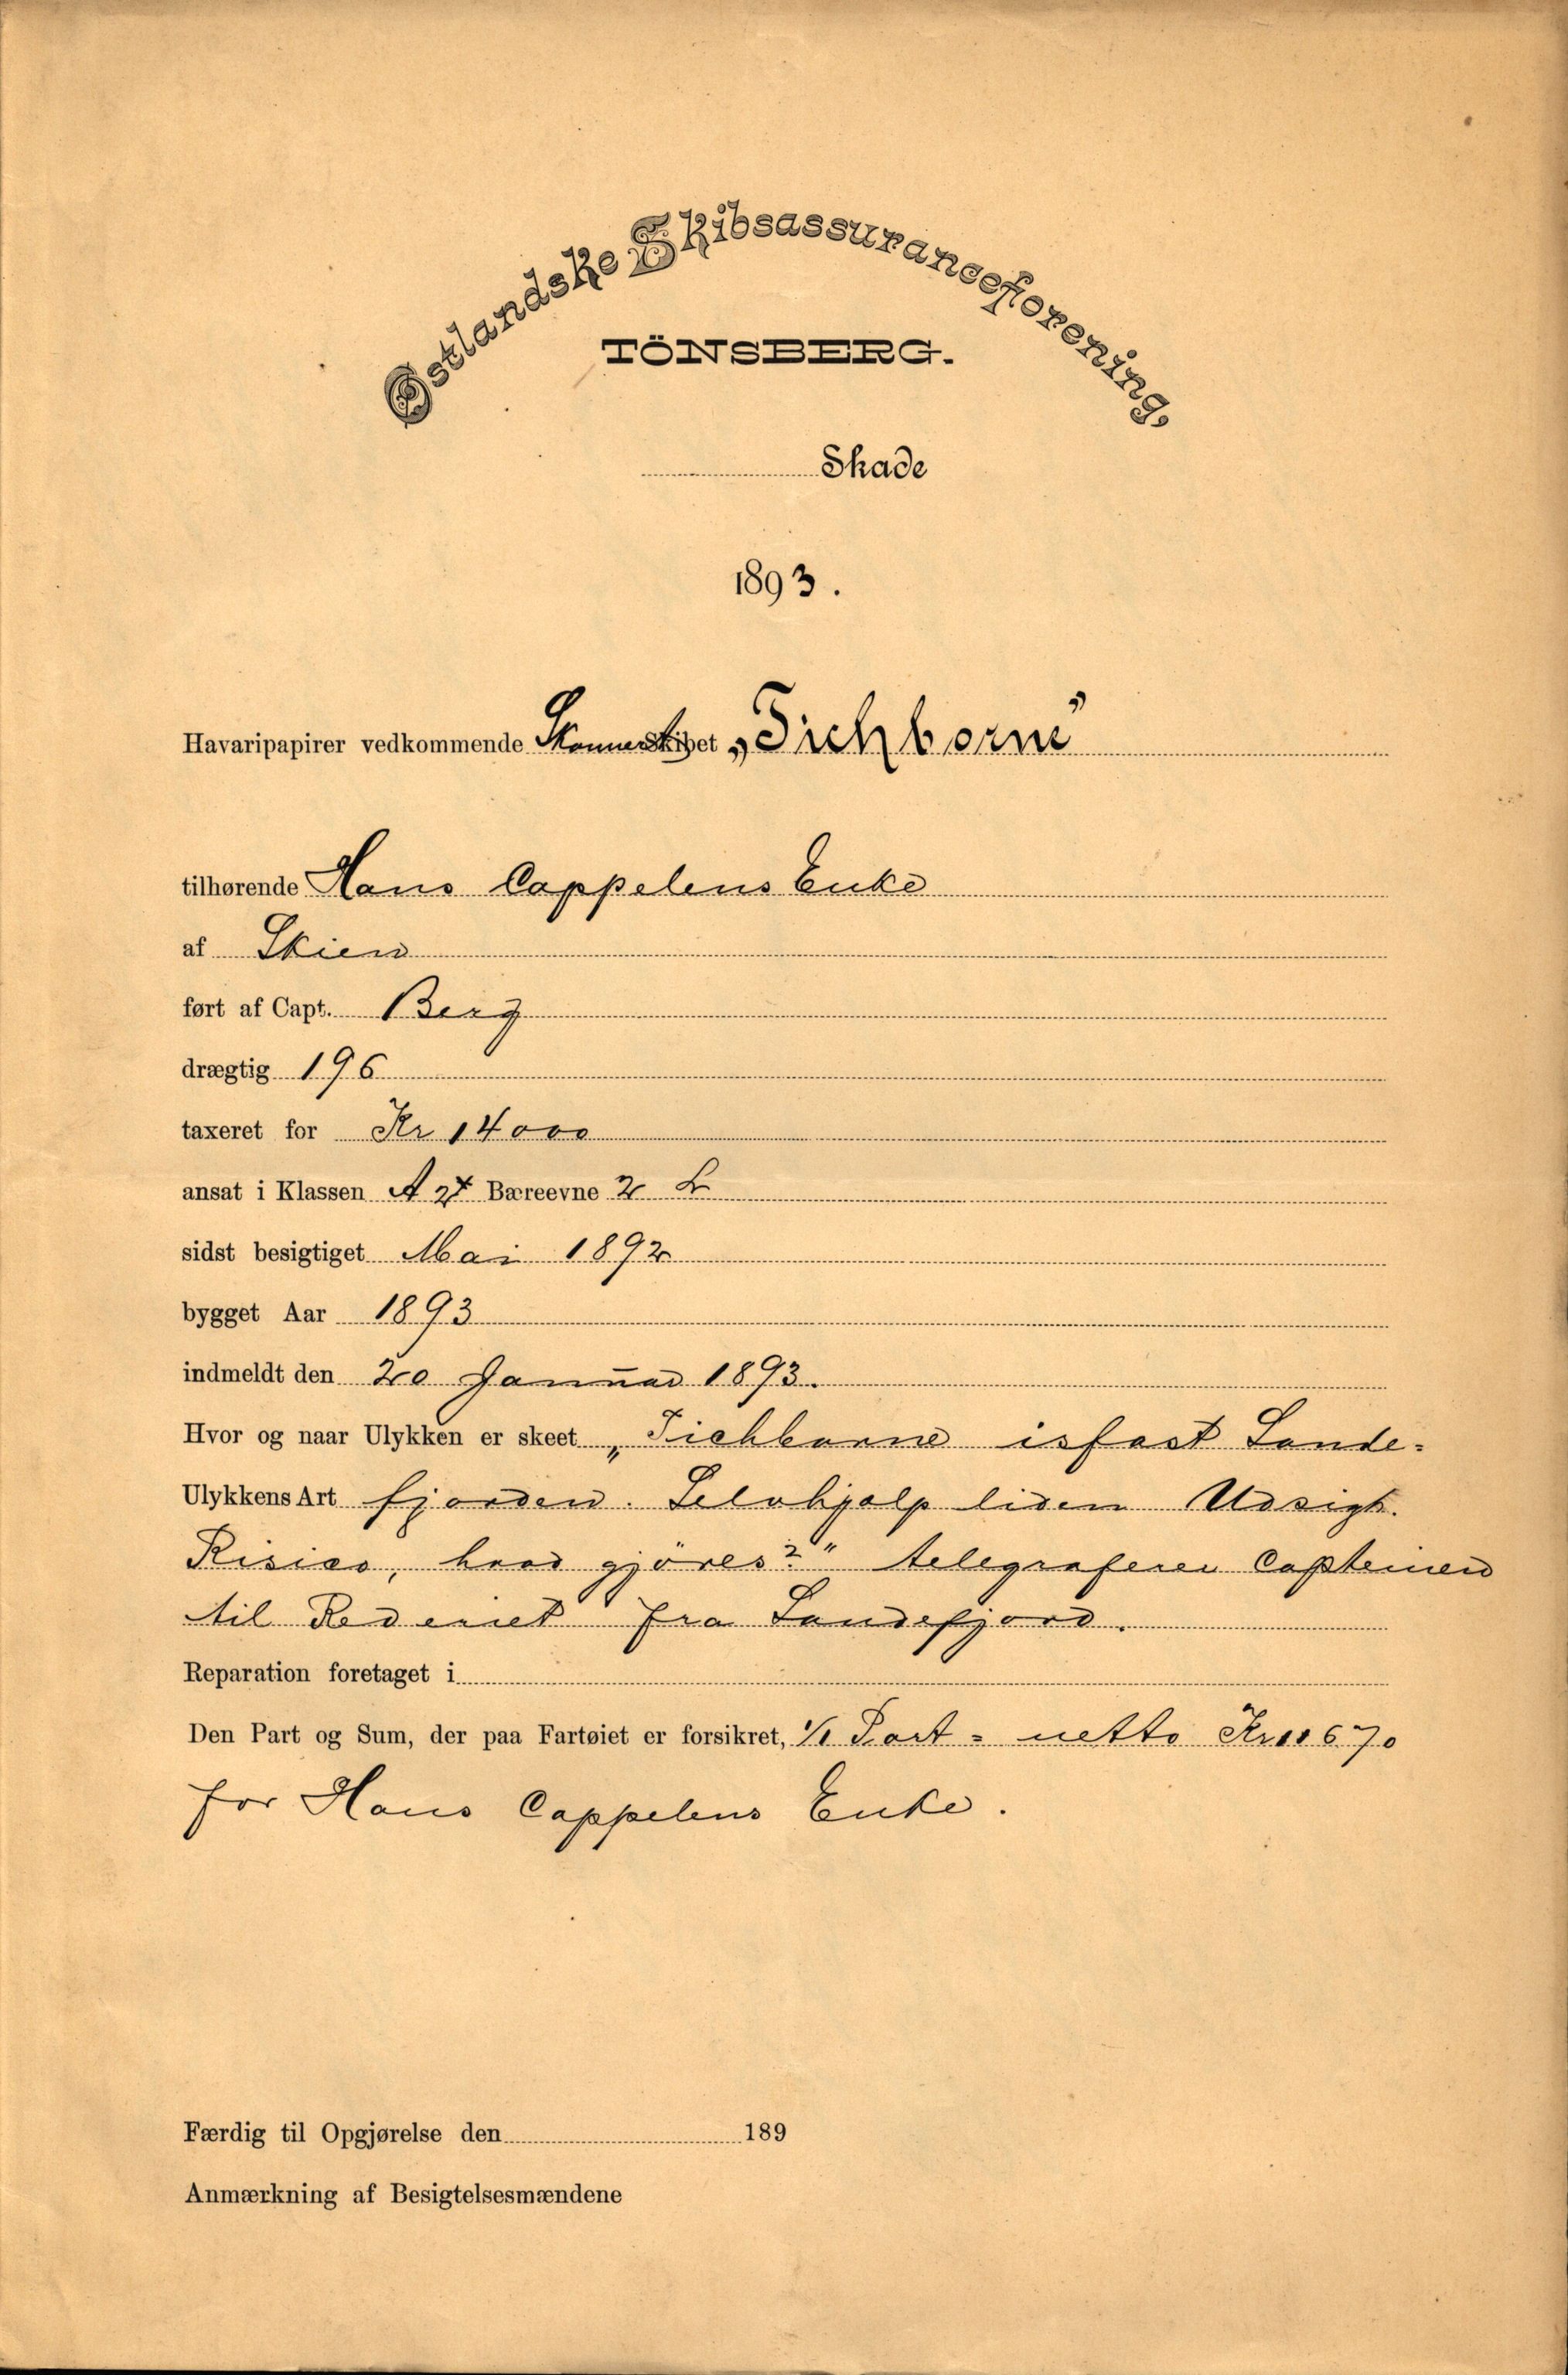 Østlandske Skibsassuranceforening,
TÖNSBERG.
Skade
1893.
Havaripapirer vedkommende Skonnertskibet „Tichborne"
tilhørende Hans Cappelens Enke
af Skien
ført af Capt. Berg
drægtig 196
taxeret for Kr 14000
ansat i Klassen A 2 Bæreevne 2 L
sidst besigtiget Mai 1892
bygget Aar 1893
indmeldt den 20 Januar 1893.
Hvor og naar Ulykken er skeet „Tichborne isfast Sande-
Ulykkens Art fjorden. Selvhjælp liden Udsigt.
Risico, hvad gjöres?" telegraferer Capteinen
til Rederiet fra Sandefjord.
Reparation foretaget i
Den Part og Sum, der paa Fartøiet er forsikret, 1/1 Part = netto Kr 11670
for Hans Cappelens Enke.
Færdig til Opgjørelse den 189
Anmærkning af Besigtelsesmændene